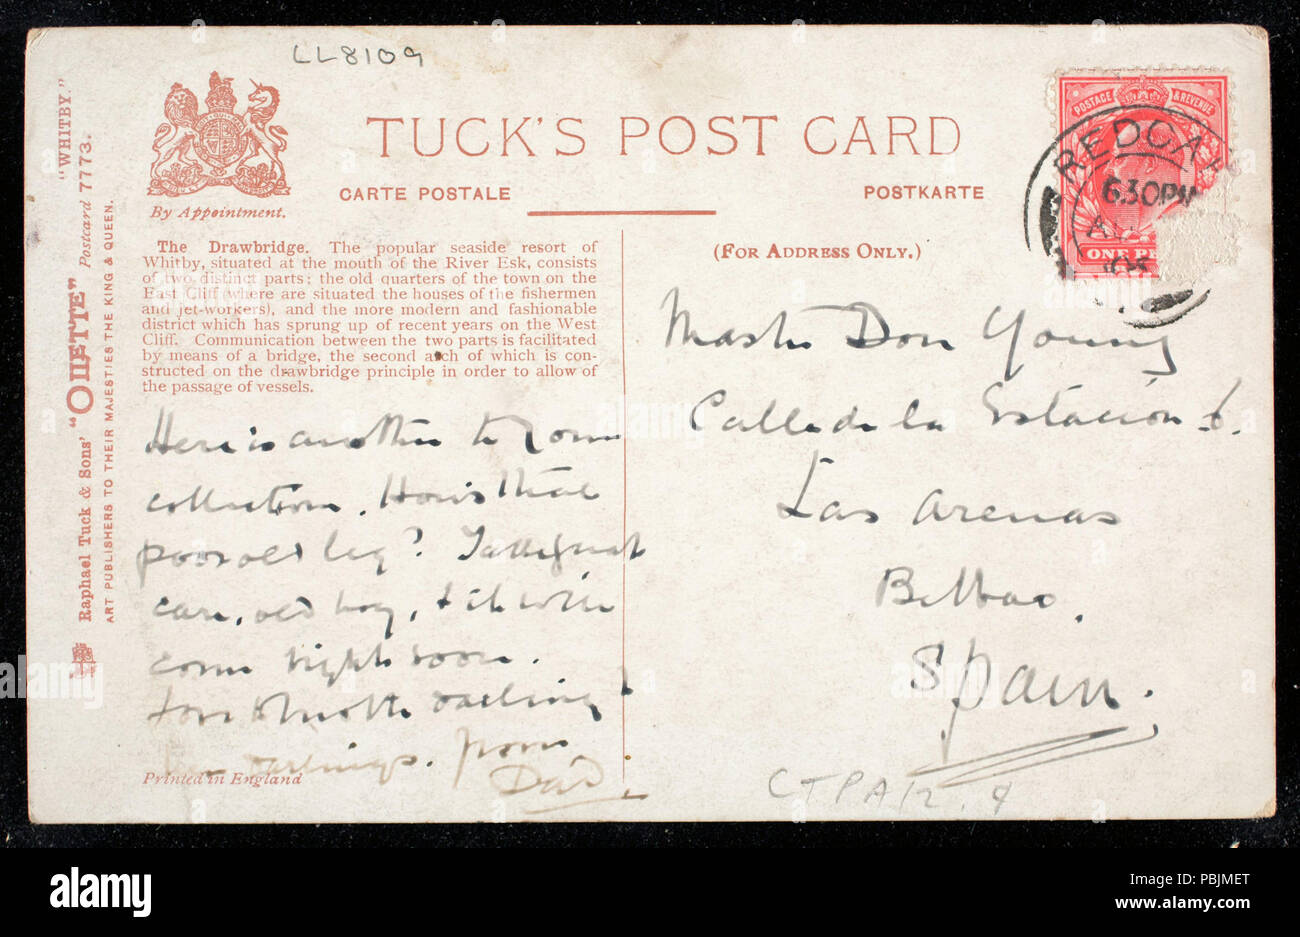 LL8109
"WHITBY."
Raphael Tuck & Sons' "OILETTE" Postcard 7773.
ART PUBLISHERS TO THEIR MAJESTIES THE KING & QUEEN.
By Appointment.
TUCK'S POST CARD
CARTE POSTALE POSTKARTE
The Drawbridge. The popular seaside resort of
Whitby, situated at the mouth of the River Esk, consists
of two distinct parts; the old quarters of the town on the
East Cliff (where are situated the houses of the fishermen
and jet-workers), and the more modern and fashionable
district which has sprung up of recent years on the West
Cliff. Communication between the two parts is facilitated
by means of a bridge, the second arch of which is con-
structed on the drawbridge principle in order to allow of
the passage of vessels.
Here is another to your
collection. How's that
poor old leg? Take great
care, old boy, & it will
come right soon.
Love to Mother darling
darlings. from
Dad.
Printed in England
(FOR ADDRESS ONLY.)
POSTAGE & REVENUE
ONE PE
REDCA
6.30PM
Master Don Young
Calle de la Estacion 6.
Las Arenas
Bilbao.
Spain.
CTPA12.9
alamy
Image ID: PBJMET
www.alamy.com